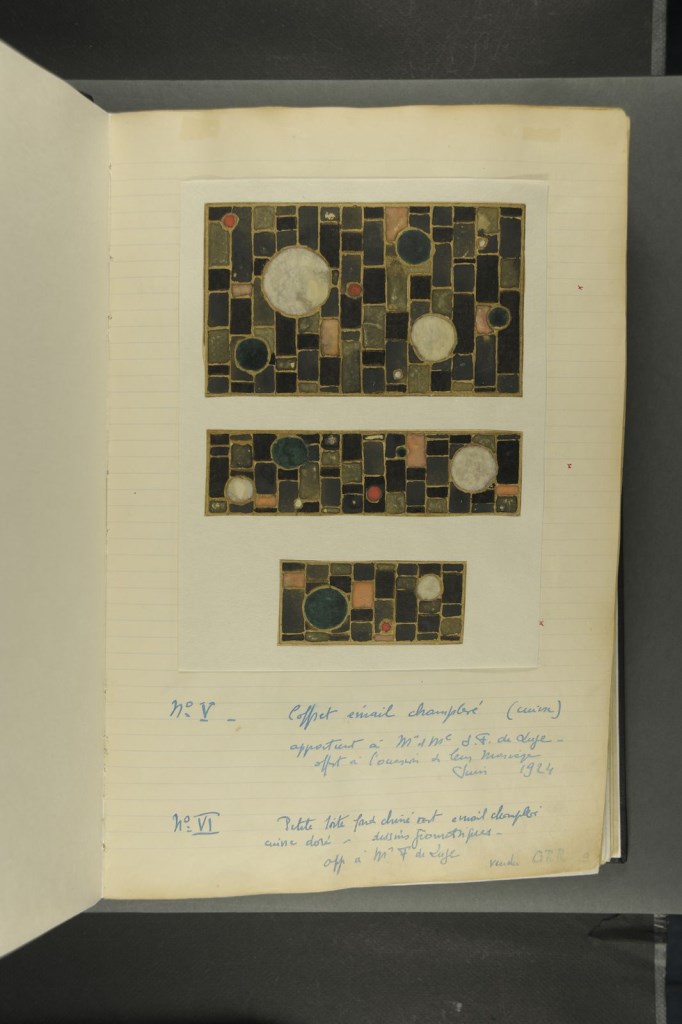 No V - Coffret émail champlevé (cuivre)
appartient à Mr & Me J. F. de Luze -
offert à l'occasion de leur mariage
Juin 1924
No VI Petite boîte fond émail champlevé
cuivre doré - dessins géométriques -
app à Mr F de Luze